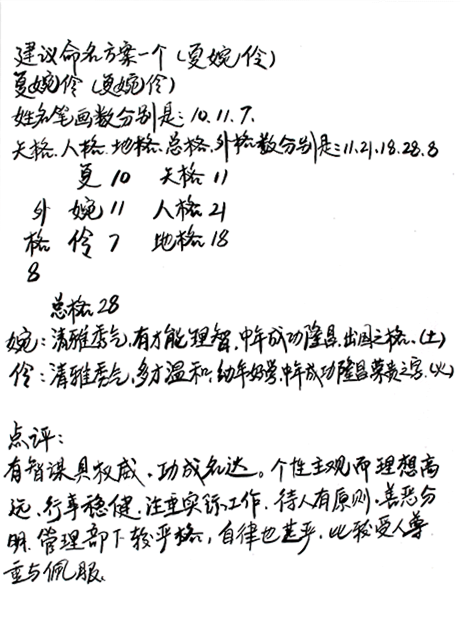 建议命名方案一个(夏婉伶)
夏婉伶(夏婉伶)
姓名笔画数分别是:10.11.7.
天格.人格.地格.总格.外格数分别是:11.21.18.28.8
夏 10 天格 11
外 婉 11 人格 21
格 伶 7 地格 18
8
总格 28
婉:清雅秀气,有才能理智.中年成功隆昌.出国之格.(土)
伶:清雅秀气,多才温和.幼年好学.中年成功隆昌荣贵之字.(火)
点评:
有智谋具权威.功成名达。个性主观而理想高
远.行事稳健.注重实际工作.待人有原则.善恶分
明.管理部下较严格,自律也甚严.比较受人尊
重与佩服.